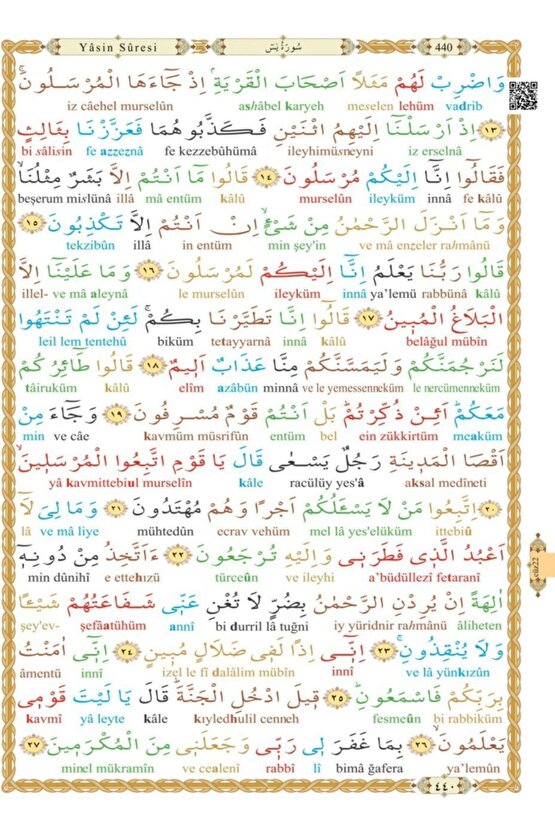 Yâsin Sûresi سُورَةُ يٰسٓ 440
وَاضْرِبْ لَهُمْ مَثَلاً اَصْحَابَ الْقَرْيَةِۢ اِذْ جَٓاءَهَا الْمُرْسَلُونَۚ
vadrib lehüm meselen ashâbel karyeh iz câehel murselûn
﴿١٣﴾ اِذْ اَرْسَلْنَٓا اِلَيْهِمُ اثْنَيْنِ فَكَذَّبُوهُمَا فَعَزَّزْنَا بِثَالِثٍ
iz erselnâ ileyhimüsneyni fe kezzebûhümâ fe azzeznâ bi sâlisin
فَقَالُٓوا اِنَّٓا اِلَيْكُمْ مُرْسَلُونَ ﴿١٤﴾ قَالُوا مَٓا اَنْتُمْ اِلَّا بَشَرٌ مِثْلُنَاۙ
fe kâlû innâ ileyküm murselûn kâlû mâ entüm illâ beşerum mislünâ
وَمَٓا اَنْزَلَ الرَّحْمٰنُ مِنْ شَيْءٍۙ اِنْ اَنْتُمْ اِلَّا تَكْذِبُونَ ﴿١٥﴾
ve mâ enzeler rahmânü min şey'in in entüm illâ tekzibûn
قَالُوا رَبُّنَا يَعْلَمُ اِنَّٓا اِلَيْكُمْ لَمُرْسَلُونَ ﴿١٦﴾ وَمَا عَلَيْنَٓا اِلَّا
kâlû rabbünâ ya'lemü innâ ileyküm le murselûn ve mâ aleynâ illel-
الْبَلَاغُ الْمُبٖينُ ﴿١٧﴾ قَالُٓوا اِنَّا تَطَيَّرْنَا بِكُمْۚ لَئِنْ لَمْ تَنْتَهُوا
belâgul mübîn kâlû innâ tetayyarnâ biküm leil lem tentehû
لَنَرْجُمَنَّكُمْ وَلَيَمَسَّنَّكُمْ مِنَّا عَذَابٌ اَلٖيمٌ ﴿١٨﴾ قَالُوا طَٓائِرُكُمْ
le nercümenneküm ve le yemessenneküm minnâ azâbün elîm kâlû tâiruküm
مَعَكُمْۜ اَئِنْ ذُكِّرْتُمْۜ بَلْ اَنْتُمْ قَوْمٌ مُسْرِفُونَ ﴿١٩﴾ وَجَٓاءَ مِنْ
meaküm ein zükkirtüm bel entüm kavmüm müsrifûn ve câe min
اَقْصَا الْمَدٖينَةِ رَجُلٌ يَسْعٰى قَالَ يَا قَوْمِ اتَّبِعُوا الْمُرْسَلٖينَۙ
aksal medîneti racülüy yes'â kâle yâ kavmittebiul murselîn
﴿٢٠﴾ اِتَّبِعُوا مَنْ لَا يَسْـَٔلُكُمْ اَجْرًا وَهُمْ مُهْتَدُونَ ﴿٢١﴾ وَمَا لِيَ لَٓا
ittebiû mel lâ yes'elüküm ecrav vehüm mühtedûn ve mâ liye lâ
اَعْبُدُ الَّذٖي فَطَرَنٖي وَاِلَيْهِ تُرْجَعُونَ ﴿٢٢﴾ ءَاَتَّخِذُ مِنْ دُونِهٖٓ
a'büdüllezî fetaranî ve ileyhi türceûn e ettehızü min dûnihî
اٰلِهَةً اِنْ يُرِدْنِ الرَّحْمٰنُ بِضُرٍّ لَا تُغْنِ عَنّٖي شَفَاعَتُهُمْ شَيْـًٔا
âliheten iy yüridnir rahmânü bi durril lâ tuğni annî şefâatühüm şey'ev-
وَلَا يُنْقِذُونِۚ ﴿٢٣﴾ اِنّٖٓي اِذًا لَفٖي ضَلَالٍ مُبٖينٍ ﴿٢٤﴾ اِنّٖٓي اٰمَنْتُ
ve lâ yünkızûn innî izel le fî dalâlim mübîn innî âmentü
بِرَبِّكُمْ فَاسْمَعُونِۜ ﴿٢٥﴾ قٖيلَ ادْخُلِ الْجَنَّةَۜ قَالَ يَا لَيْتَ قَوْمٖي
bi rabbiküm fesmeûn kıyledhulil cenneh kâle yâ leyte kavmî
يَعْلَمُونَۙ ﴿٢٦﴾ بِمَا غَفَرَ لٖي رَبّٖي وَجَعَلَنٖي مِنَ الْمُكْرَمٖينَ ﴿٢٧﴾
ya'lemûn bimâ ğafera lî rabbî ve cealenî minel mükramîn
٤٤٠
cüz22